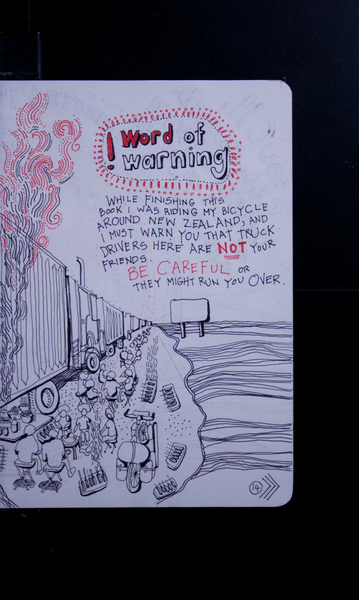 ! Word of
warning
WHILE FINISHING THIS
BOOK I WAS RIDING MY BICYCLE
AROUND NEW ZEALAND, AND
I MUST WARN YOU THAT TRUCK
DRIVERS HERE ARE NOT YOUR
FRIENDS.
BE CAREFUL OR
THEY MIGHT RUN YOU OVER.
14